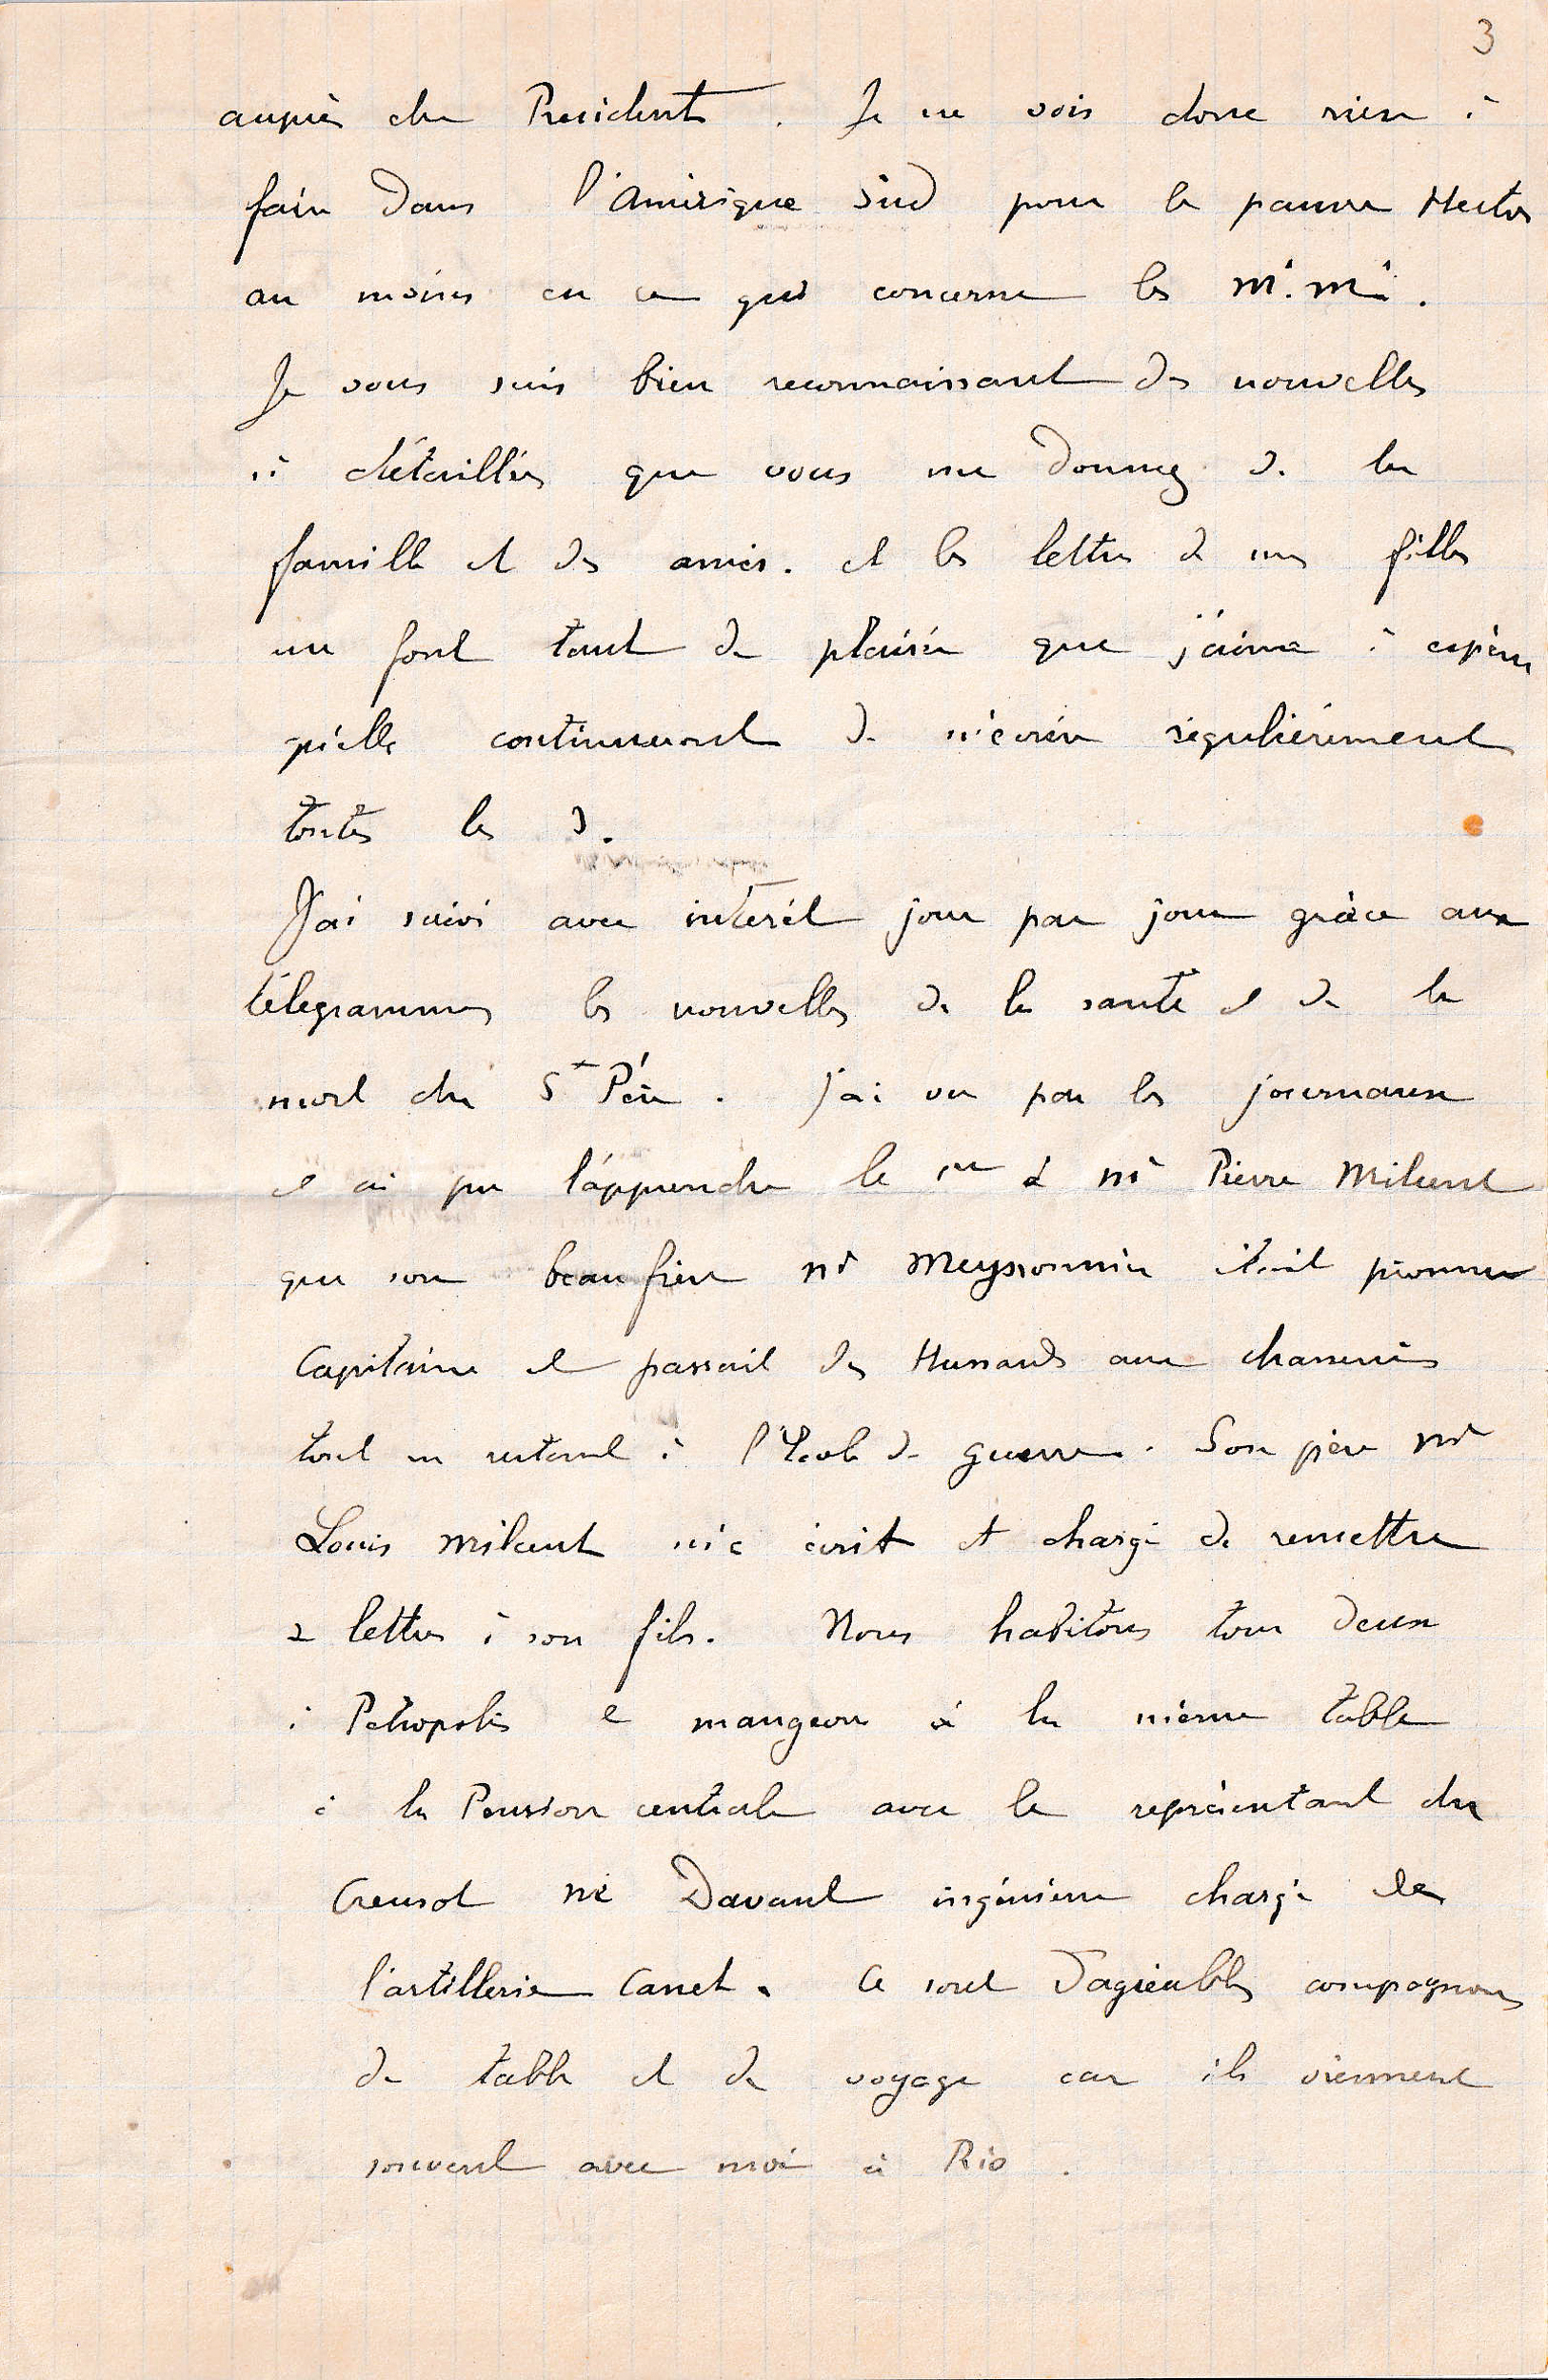 3
auprès du President. Je ne vois donc rien à
faire dans l'Amérique Sud pour le pauvre Hector
au moins en ce qui concerne les
Je vous suis bien reconnaissant des nouvelles
si détaillées que vous me donnez de la
famille et des amis. et les lettres de mes filles
me font tant de plaisir que j'aime à espérer
qu'elles continueront de m'écrire régulièrement
toutes les 3.
J'ai suivi avec intérêt jour par jour grâce aux
télegrammes les nouvelles de la santé et de la
mort du St Père. J'ai vu par les journaux
et ai pu l'apprendre le 1er à Mr Pierre Milcent
que son beau frère Mr Meyssonnier était promu
Capitaine et passait des Hussards aux chasseurs
tout en restant à l'Ecole de guerre. Son père Mr
Louis Milcent m'a écrit et chargé de remettre
2 lettres à son fils. Nous habitons tous deux
à Petropolis et mangeons à la même table
à la Pension centrale avec le représentant du
Creusot Mr Davant ingénieur chargé de
l'artillerie Canet. Ce sont d'agréables compagnons
de table et de voyage car ils viennent
souvent avec moi à Rio.